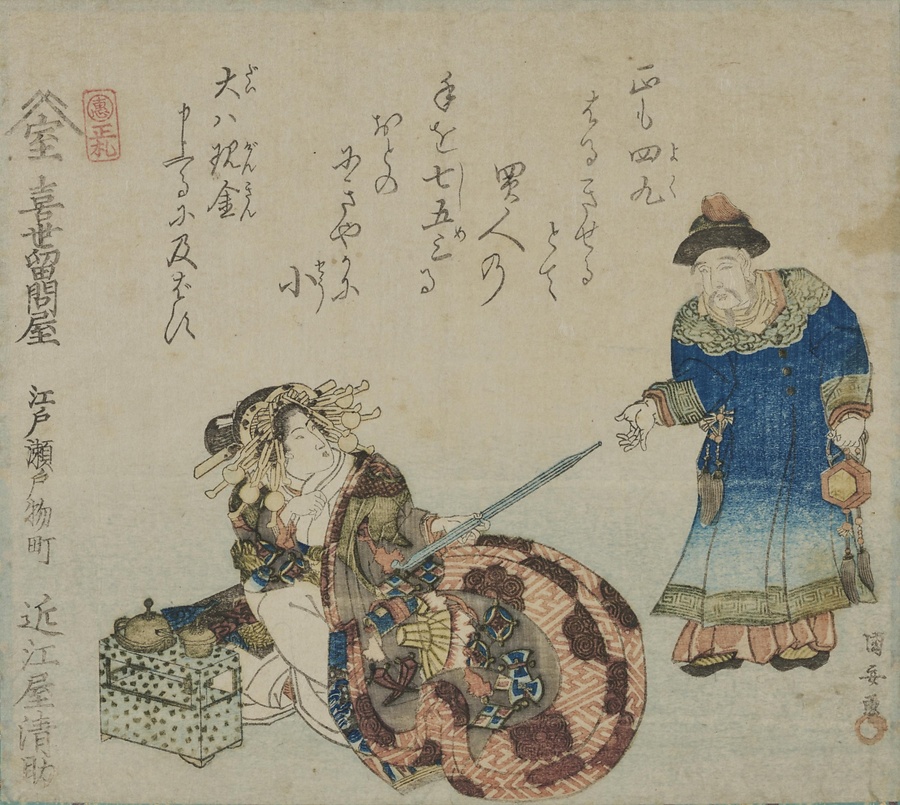 正も四九
よく
はるきせる
とて
買人の
手を七五三る
しめ
おとの
にきやかに
小
大ハ現金
だい げんきん
申上るに及ばず
惠
正札
室
喜世留問屋
江戸瀬戸物町
近江屋清助
國安画